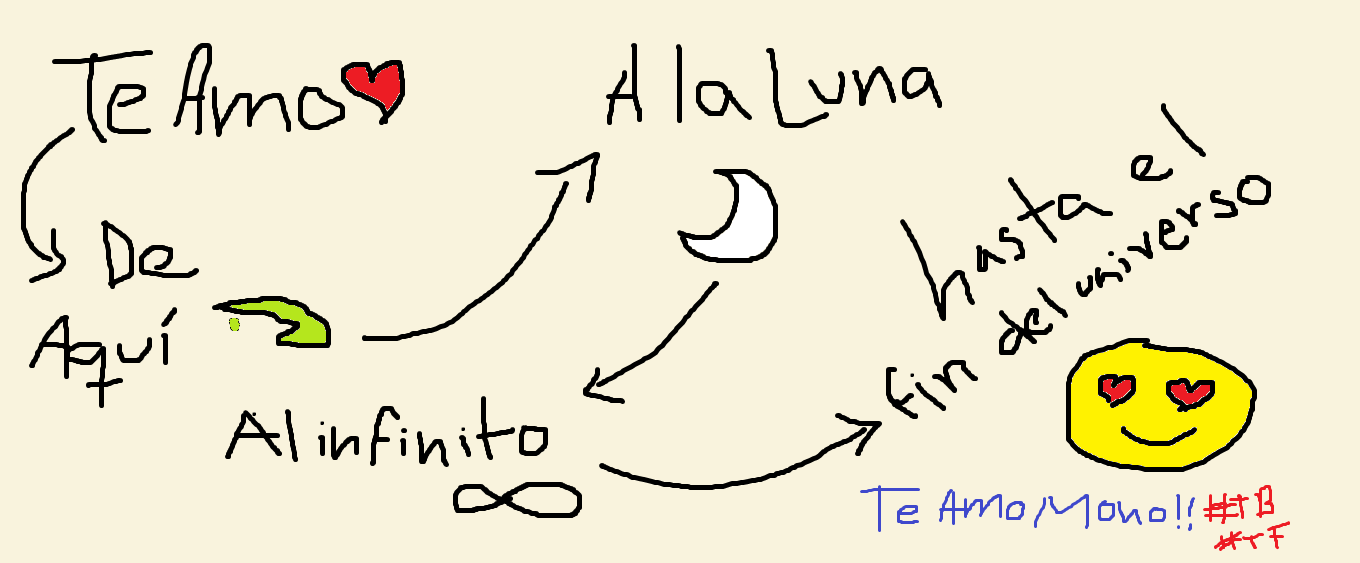 Te Amo
De
Aquí
A la Luna
Al infinito
hasta el
fin del universo
Te Amo Mono!! #TB
#TF